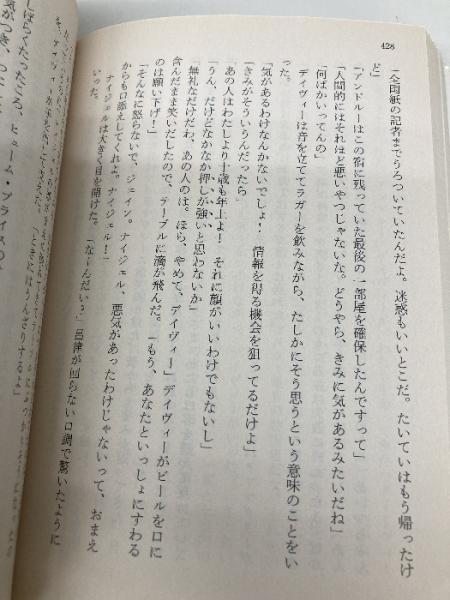 428
「全国紙の記者までうろついていたんだよ。迷惑もいいとこだ。たいていはもう帰ったけ
ど」
「アンドルーはこの宿に残っていた最後の一部屋を確保したんですって」
「人間的にはそれほど悪いやつじゃないな。どうやら、きみに気があるみたいだね」
「何ばかいってんの」
デイヴィーは音を立ててラガーを飲みながら、たしかにそう思うという意味のことをい
った。
「気があるわけなんかないでしょ！　情報を得る機会を狙ってるだけよ」
「きみがそういうんだったら
「あの人はわたしより十歳も年上よ！　それに顔がいいわけでもないし」
「うん、だけどなかなか押しが強いと思わないか」
「無礼なだけだわ、あの人のは。ほら、やめて、デイヴィー」デイヴィーがビールを口に
含んだまま笑いだしたので、テーブルに滴が飛んだ。「もう、あなたといっしょにすわる
のは願い下げ！」
「そんなに怒らないで、ジェイン。ナイジェル、悪気があったわけじゃないって、おまえ
からも口添えしてくれよ。ナイジェル！」
ナイジェルは大きく目を開けた。「なーんだい？」呂律が回らない口調で驚いたように
いった。
「ときにはうんざりするよ」
しばらくたったころ、ヒューム・プライスの